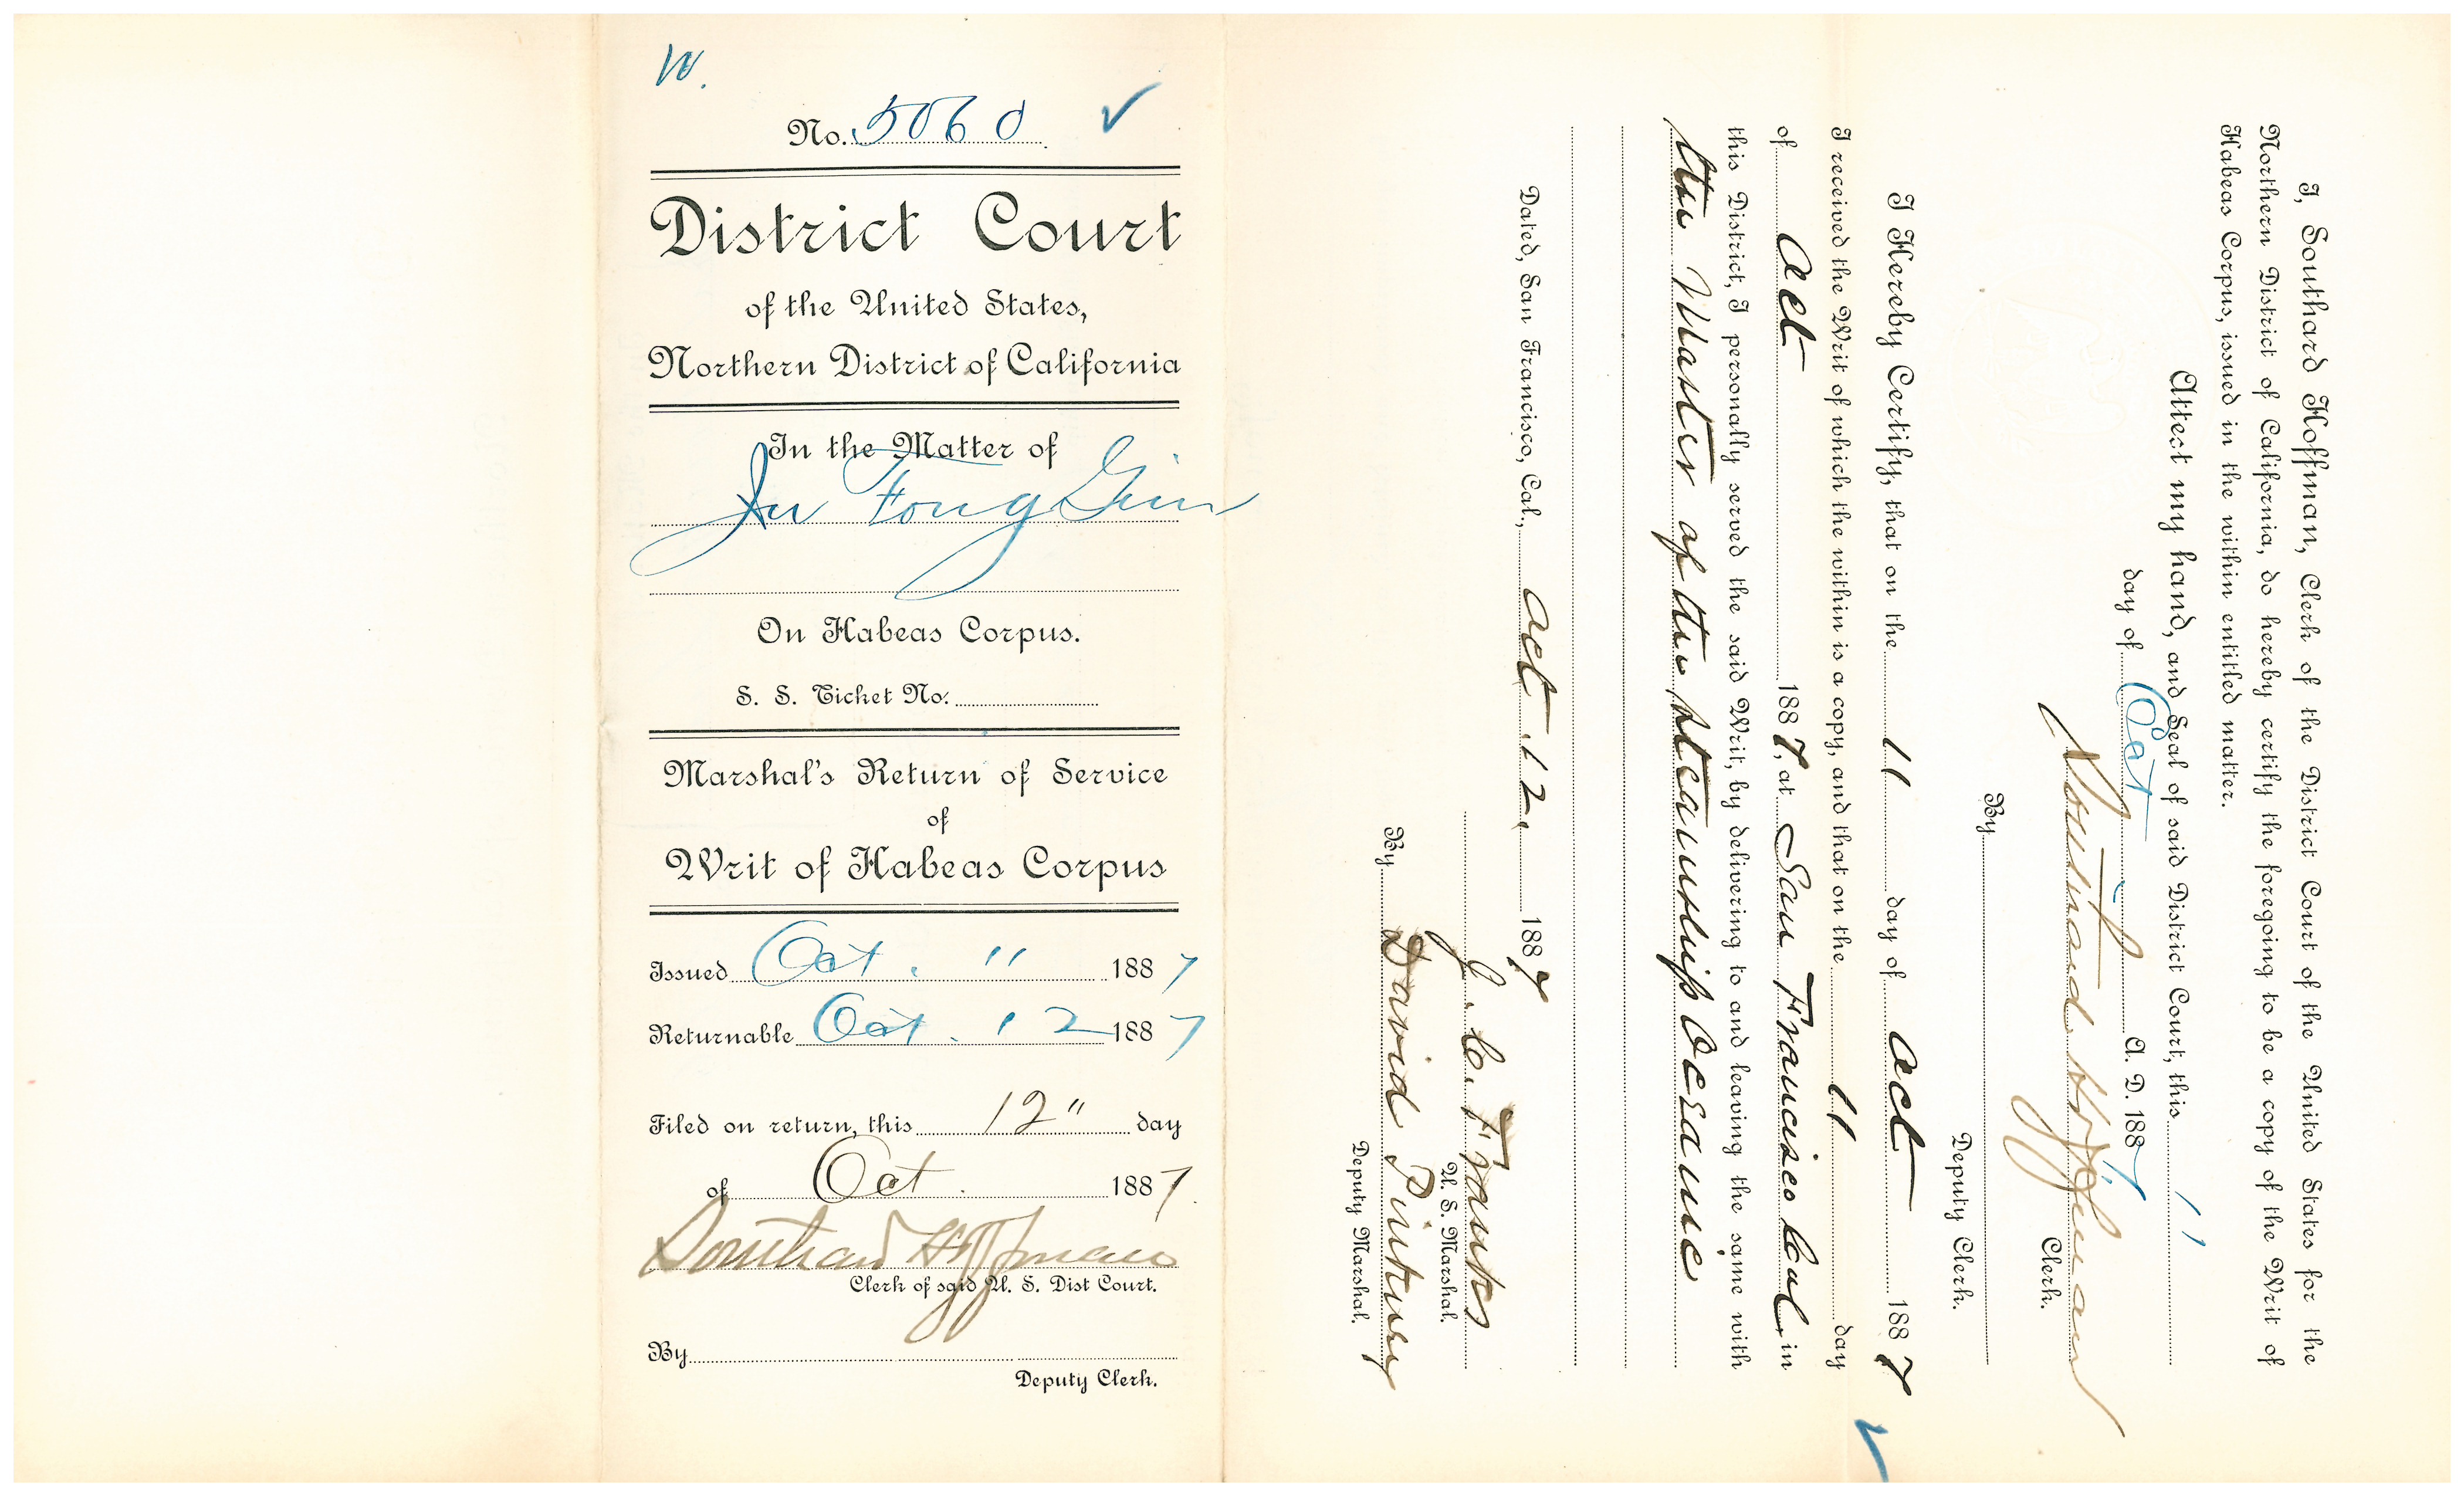 W.
No. 5060 ✓
District Court
of the United States,
Northern District of California
In the Matter of
Ju Fong Gin
On Habeas Corpus.
S. S. Ticket No.
Marshal's Return of Service
of
Writ of Habeas Corpus
Issued Oct. 11 1887
Returnable Oct. 12 1887
Filed on return, this 12" day
of Oct. 1887.
Southard Hoffman
Clerk of said U. S. Dist Court.
By
Deputy Clerk.
I, Southard Hoffman, Clerk of the District Court of the United States for the
Northern District of California, do hereby certify the foregoing to be a copy of the Writ of
Habeas Corpus, issued in the within entitled matter.
Attest my hand, and Seal of said District Court, this 11
day of Oct A. D. 1887
Southard Hoffman
Clerk.
By
Deputy Clerk.
I Hereby Certify, that on the 11 day of Oct 1887
I received the Writ of which the within is a copy, and that on the 11 day
of Oct 1887, at San Francisco Cal, in
this District, I personally served the said Writ, by delivering to and leaving the same with
the Master of the steamship Oceanic
Dated, San Francisco, Cal., Oct 12, 1887
J. C. Franks
U. S. Marshal.
By David
Deputy Marshal.